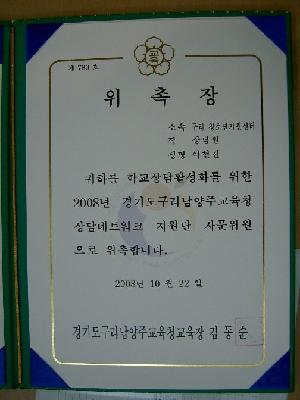 제 783 호
위 촉 장
소속 구리 청소년지원센터
직 상담원
성명 이현진
귀하를 학교상담활성화를 위한
2008년 경기도구리남양주교육청
상담네트워크 지원단 자문위원
으로 위촉합니다.
2008년 10 월 22 일
경기도구리남양주교육청교육장 김 동 순